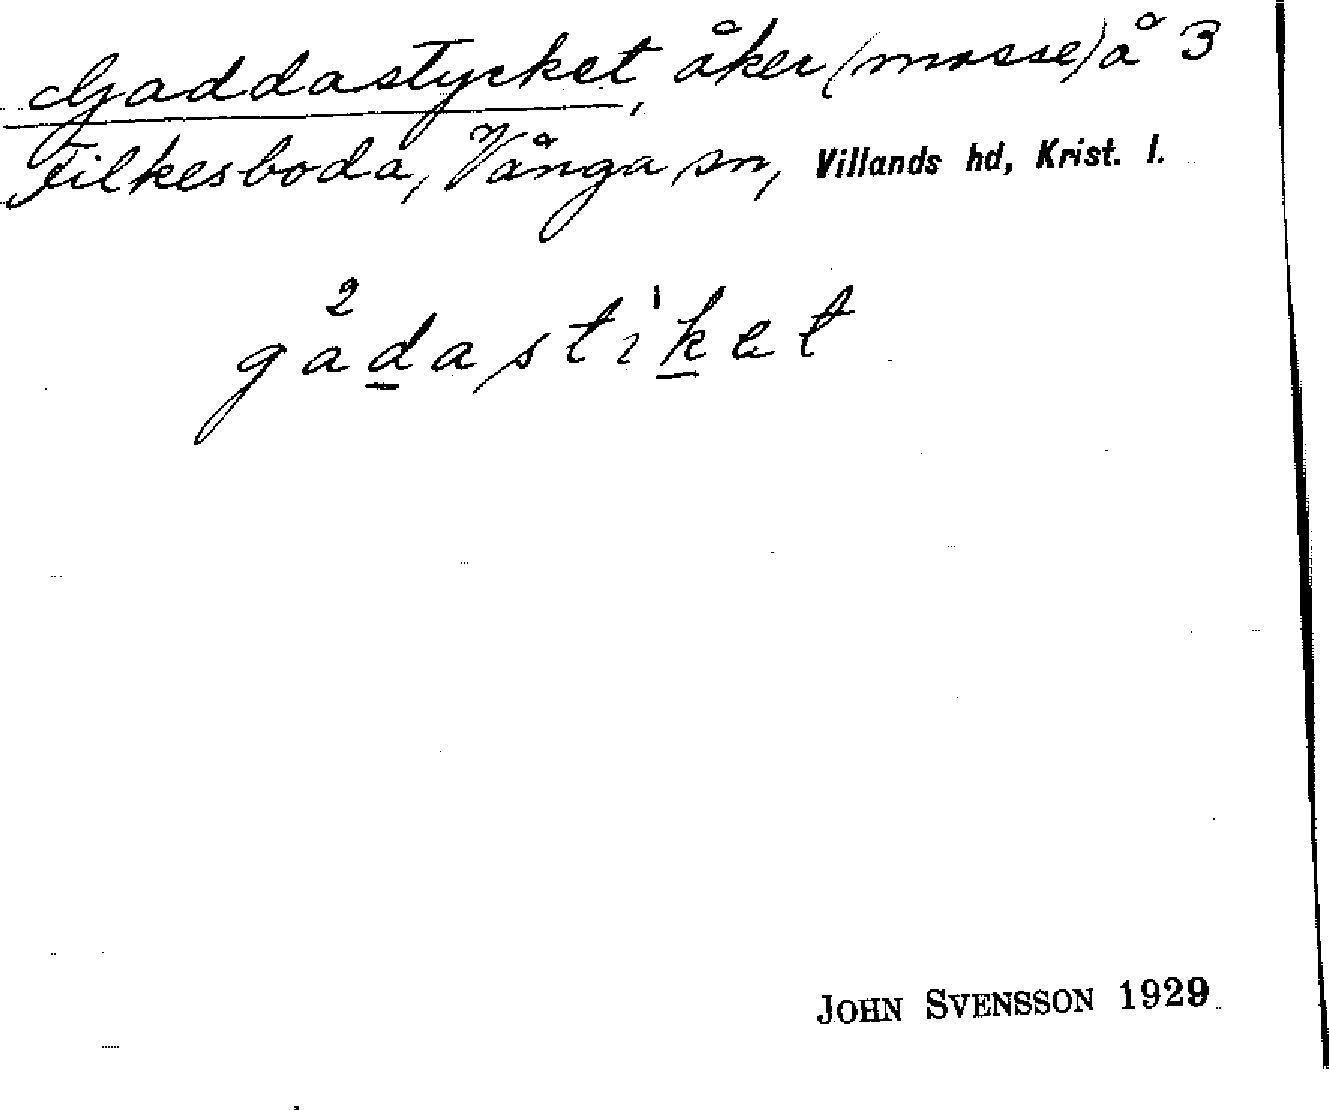 Gaddastycket, åker (mosse) å 3
Filkesboda, Vånga sn, Villands hd, Krist. l.
gadastiket
JOHN SVENSSON 1929